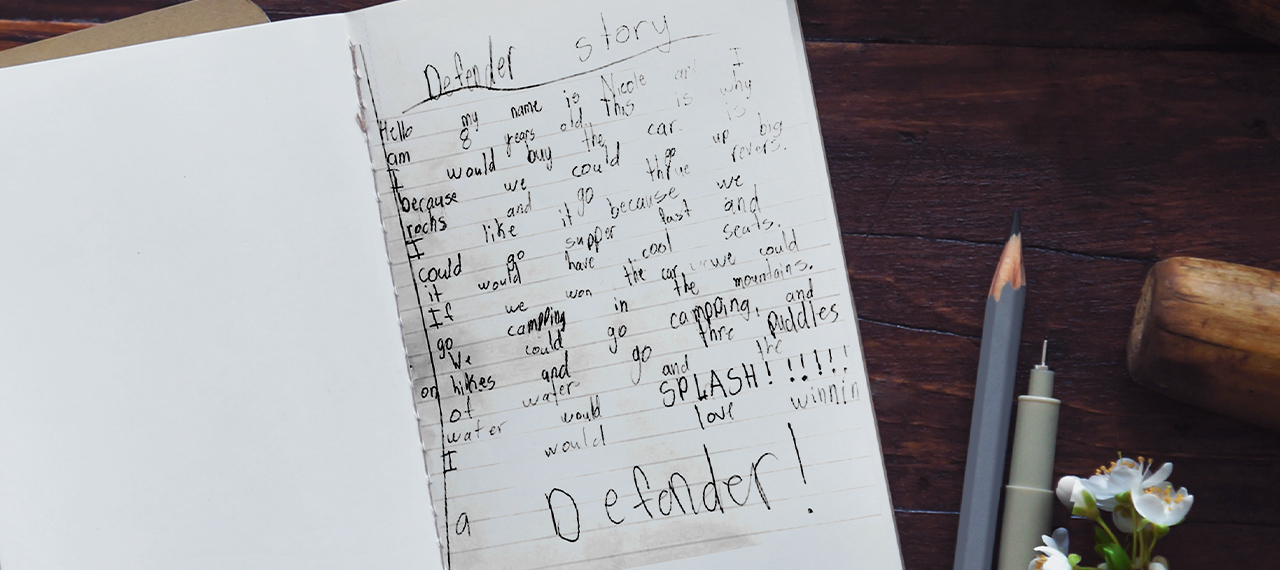 Defender story
Hello my name is Nicole and I
am 8 years old, this is why
I would buy the car. is
because we could go up big
rocks and go thrue revers.
I like it because we
could go supper fast and
it would have cool seats.
If we won the car we could
go campping in the mountains.
We could go campping, and
on hikes and go thre puddles
of water and the
water would SPLASH! !!!!!
I would love winnin
a Defander!